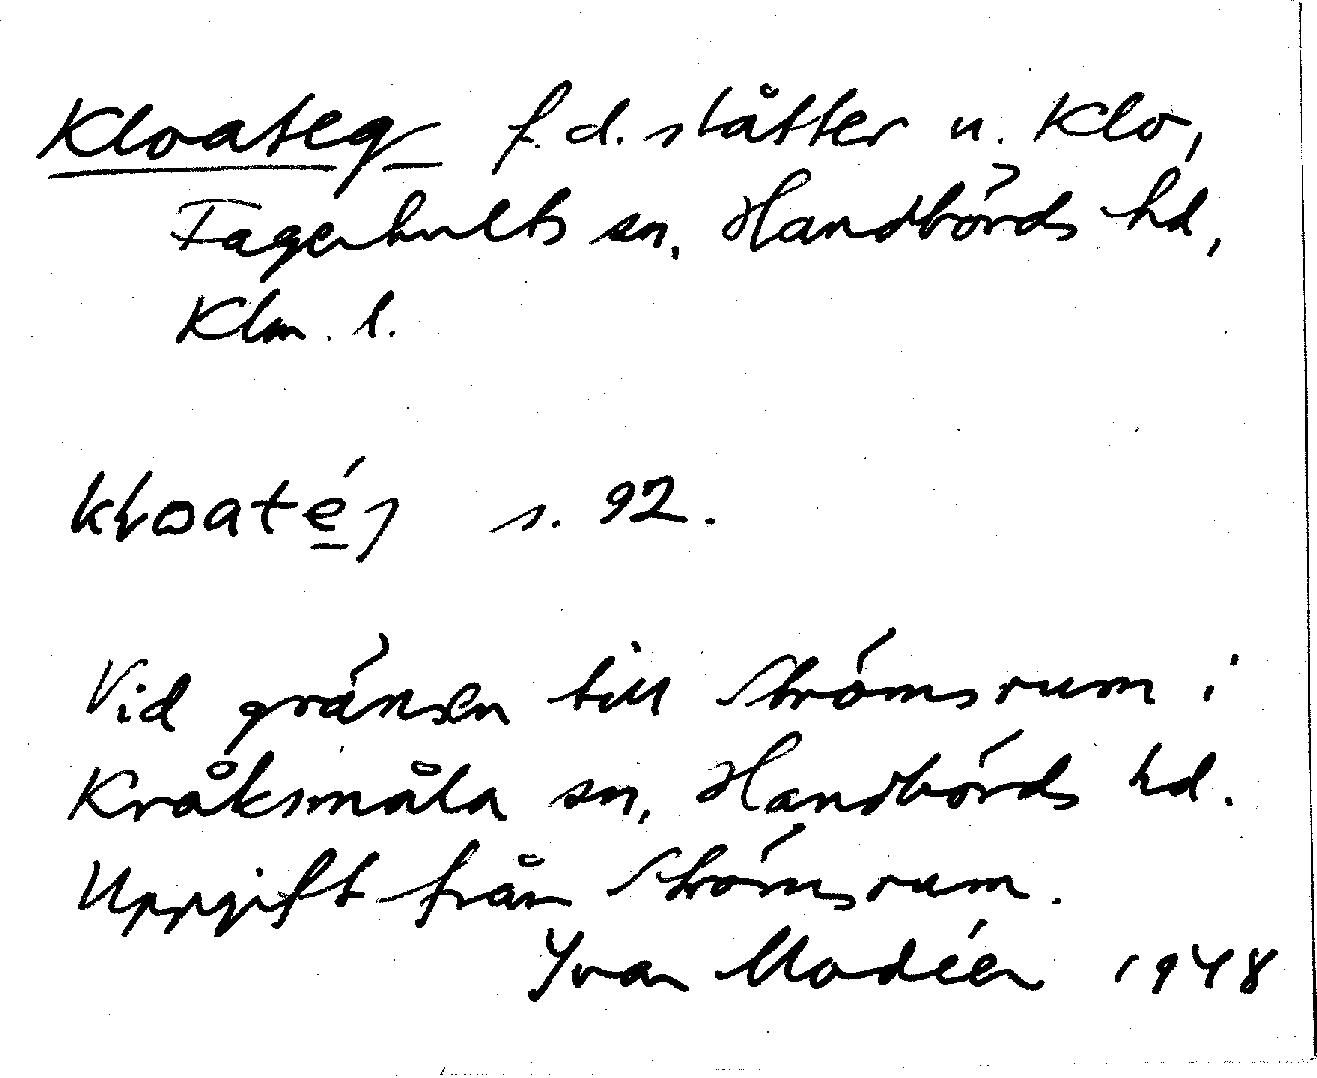 Kloateg f.d. slåtter u. Klo,
Fagerhults sn, Handbörds hd,
Klm. l.
kloatég s. 92.
Vid gränsen till Strömsrum i
Kråksmåla sn, Handbörds hd.
Uppgift från Strömsrum.
Yvan Modéer 1948